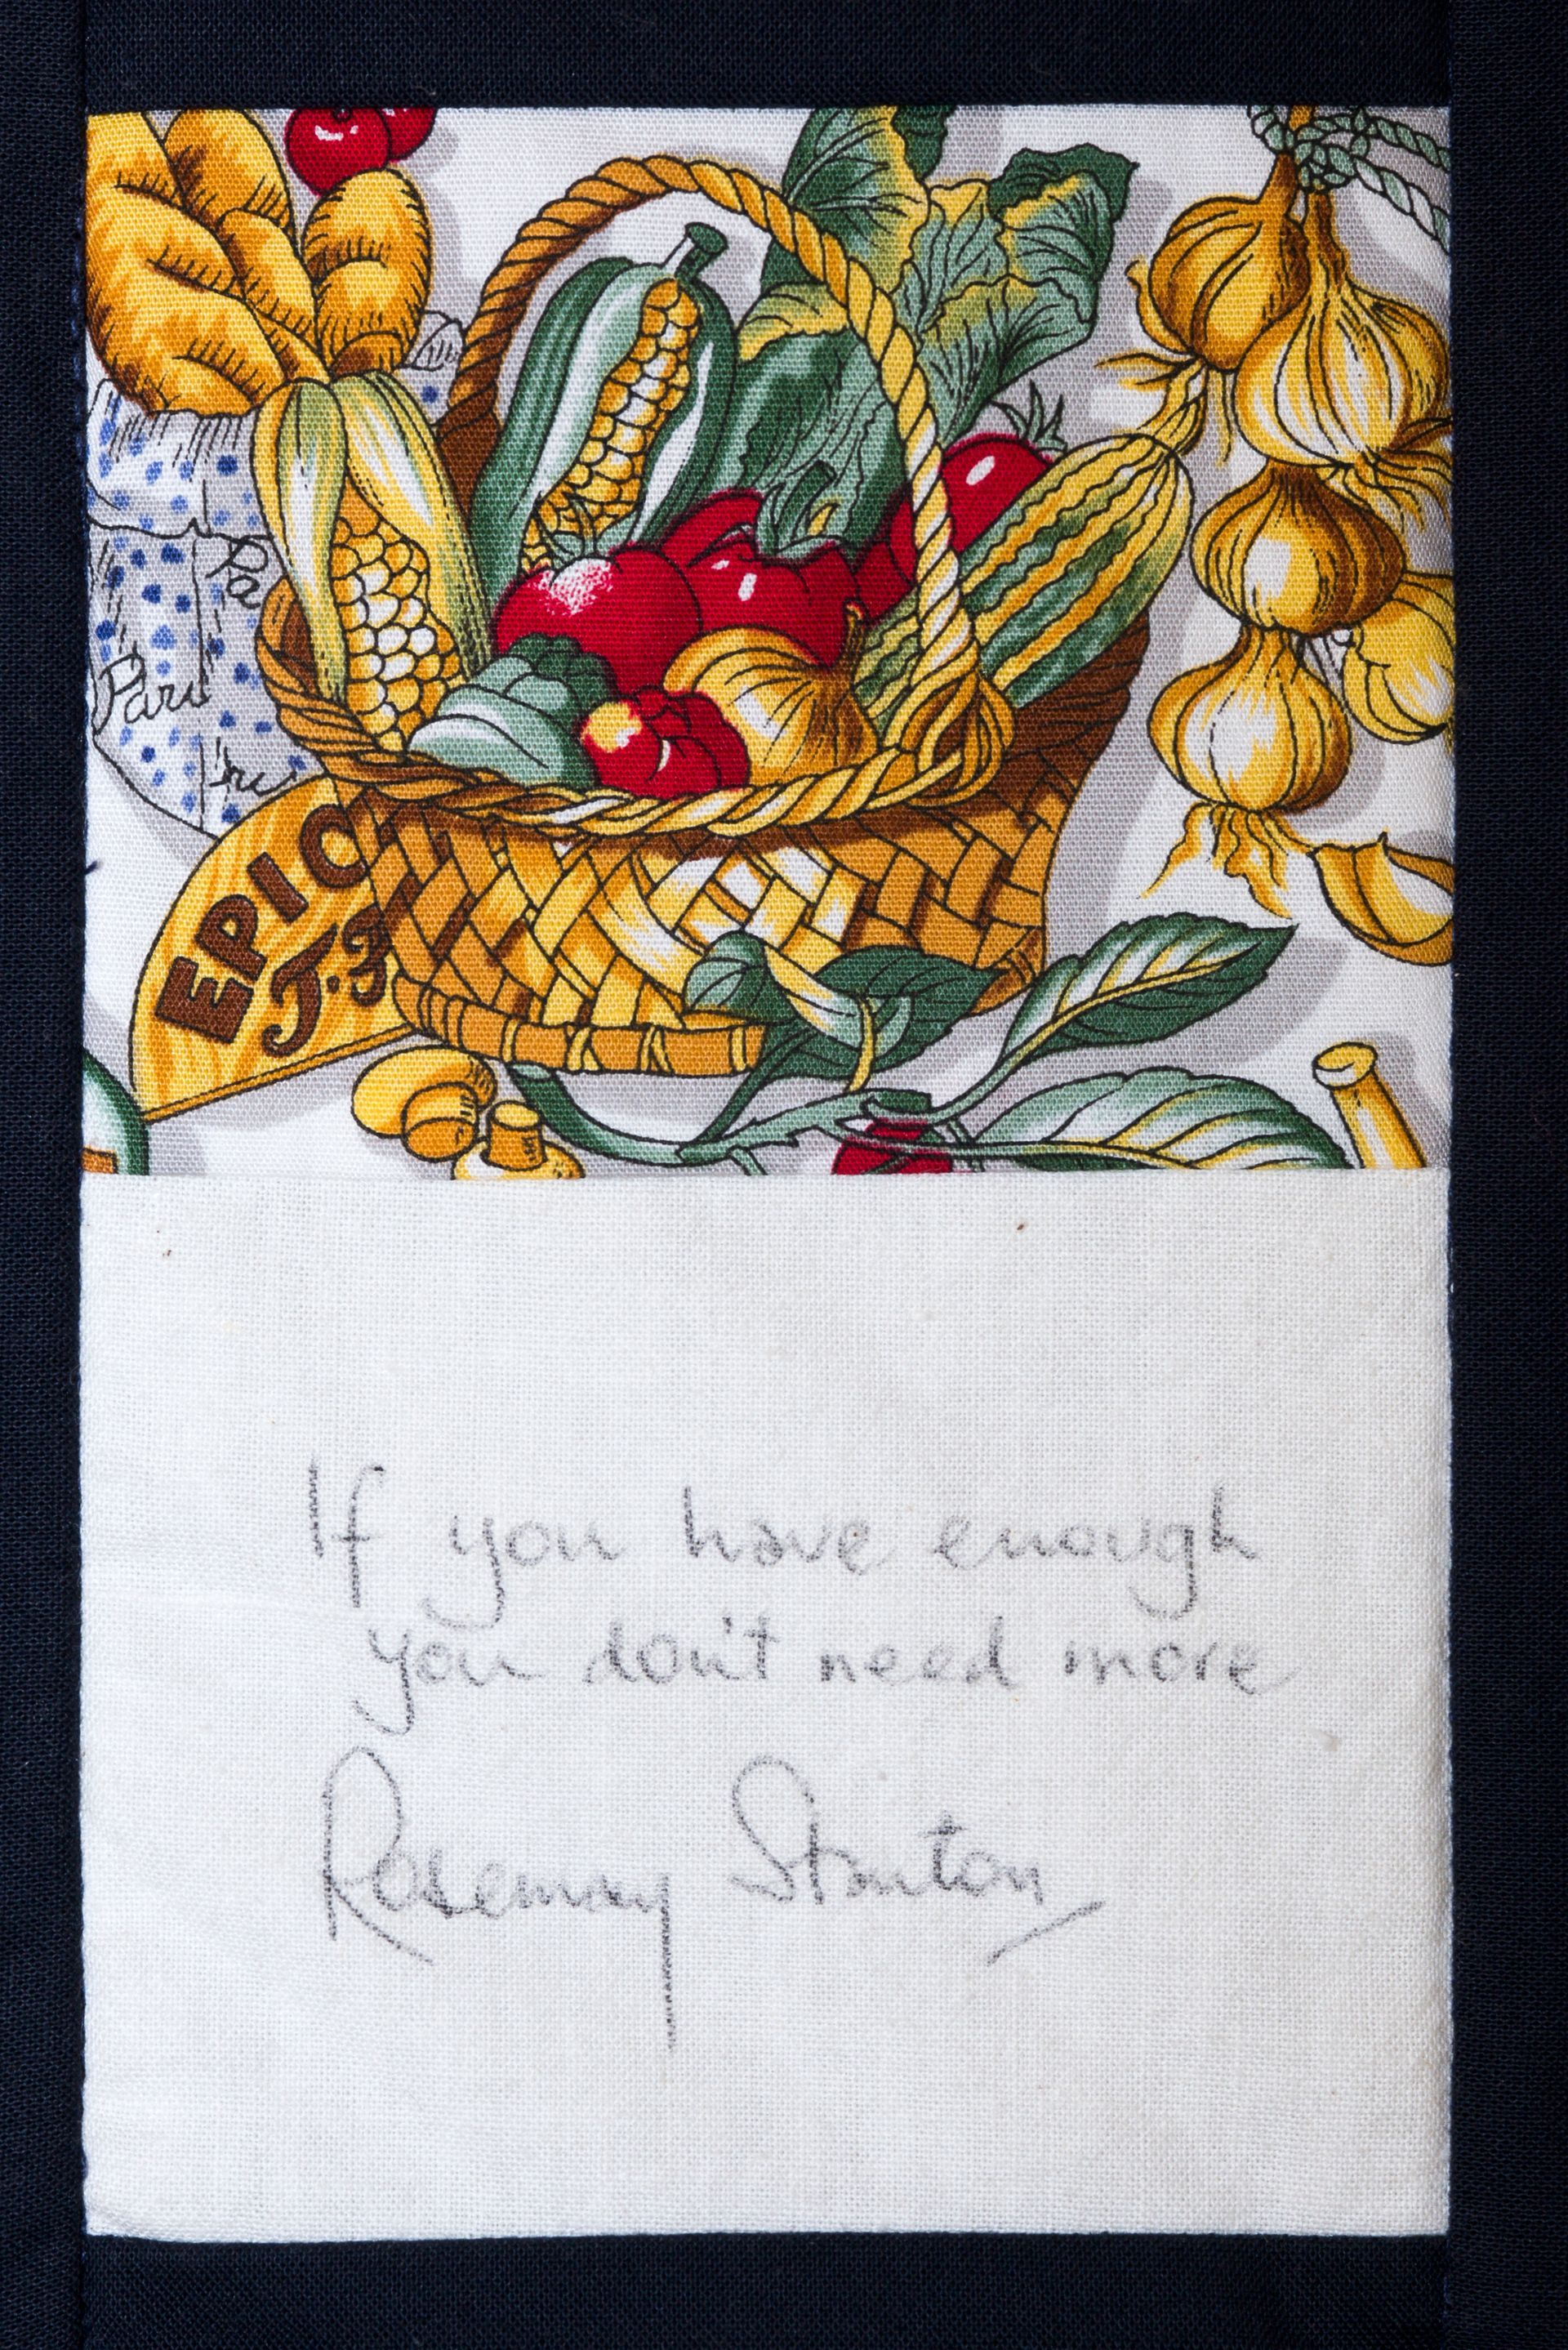 Pa
Pari
EPIC
J.F
If you have enough
you don't need more
Rosemary Stanton